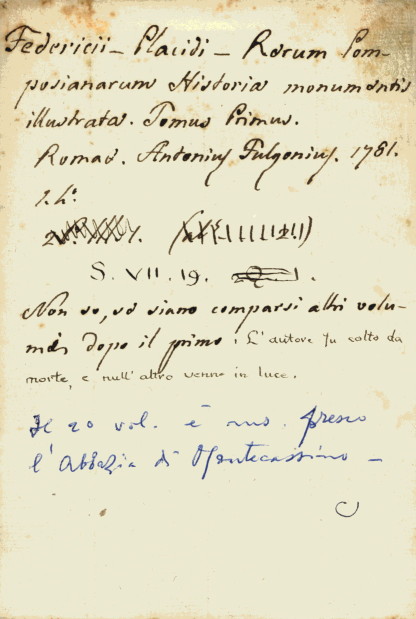 Federicii - Placidi - Rerum Pom-
posianarum Historia monumentis
illustrata. Tomus Primus.
Romae. Antonius Fulgonius. 1781.
S. VII. 19.
Non so, se siano comparsi altri volu-
mi dopo il primo: L'autore fu colto da
morte, e null'altro venne in luce.
Il 2o vol. è ms. presso
l'Abbazia di Montecassino -